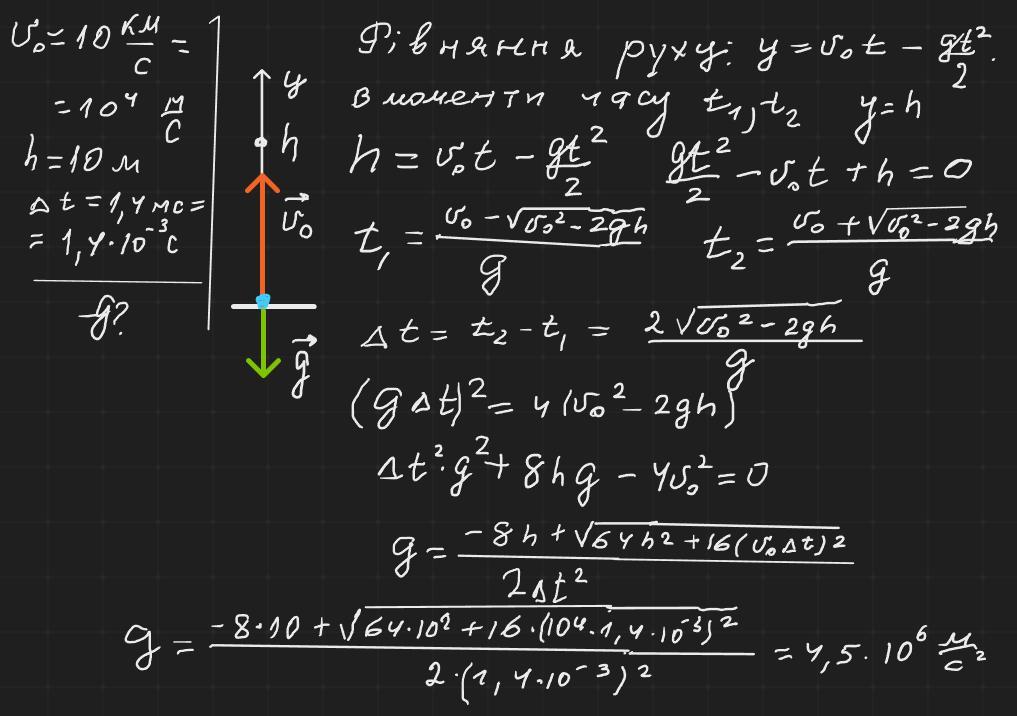 v₀ = 10 км/с =
= 10⁴ м/с
h = 10 м
Δt = 1,4 мс =
= 1,4·10⁻³ с
g?
y
h
v⃗₀
g⃗
Рівняння руху: y = v₀t − gt²/2.
в моменти часу t₁, t₂ y = h
h = v₀t − gt²/2 gt²/2 − v₀t + h = 0
t₁ = (v₀ − √(v₀² − 2gh))/g t₂ = (v₀ + √(v₀² − 2gh))/g
Δt = t₂ − t₁ = 2√(v₀² − 2gh)/g
(gΔt)² = 4(v₀² − 2gh)
Δt²·g² + 8hg − 4v₀² = 0
g = (−8h + √(64h² + 16(v₀Δt)²))/(2Δt²)
g = (−8·10 + √(64·10² + 16·(10⁴·1,4·10⁻³)²))/(2·(1,4·10⁻³)²) = 4,5·10⁶ м/с²